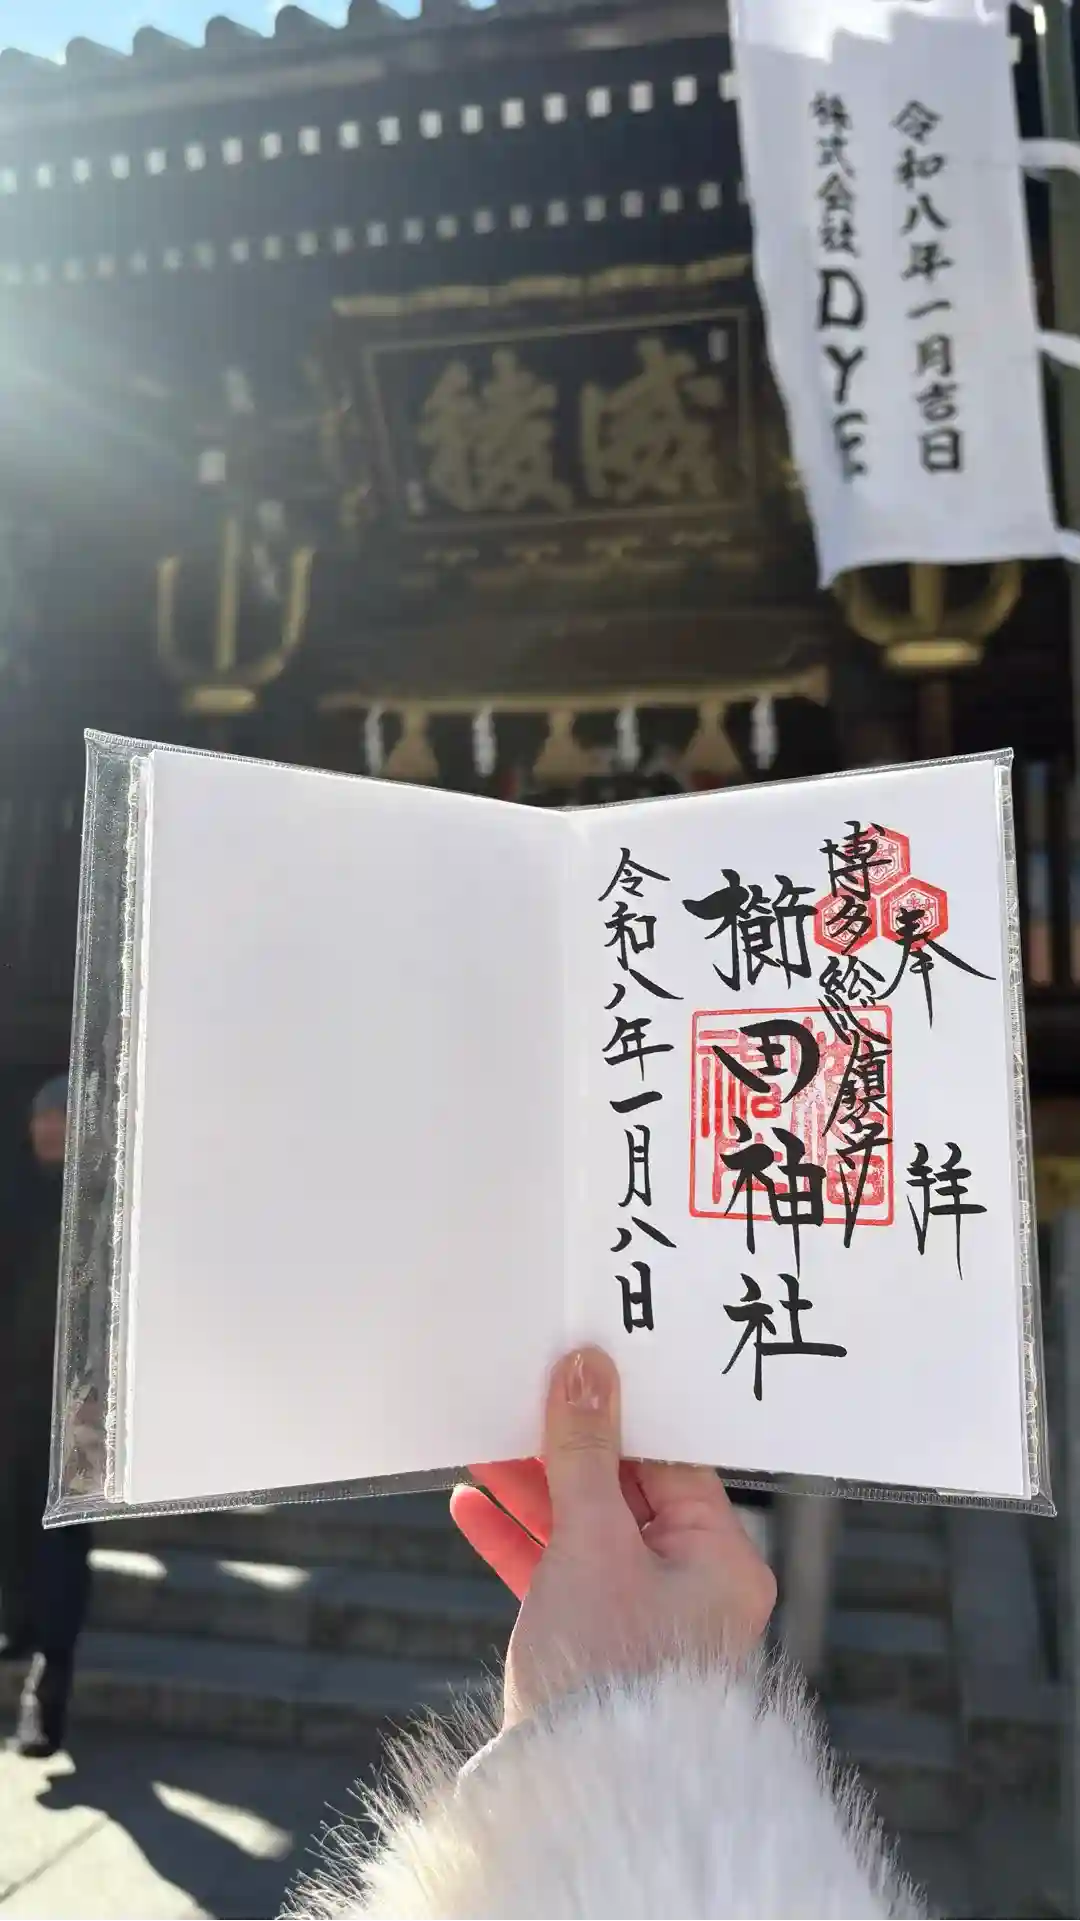 令和八年一月吉日
株式会社DYE
威稜
奉拝
博多総鎮守
櫛田神社
令和八年一月八日